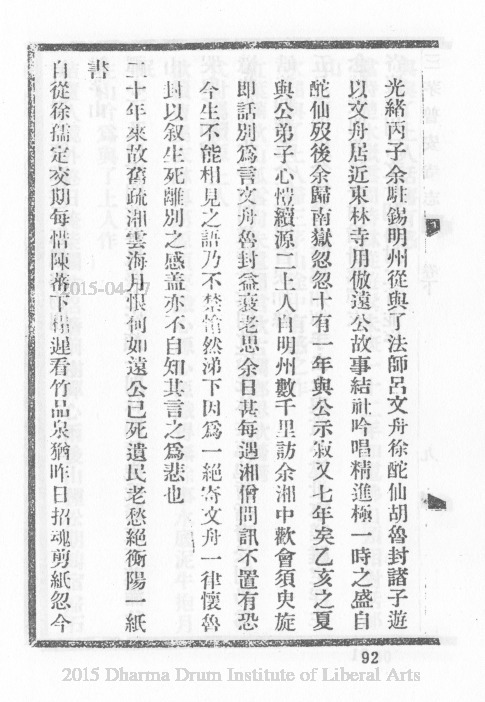 光緒丙子余駐錫明州從與了法師呂文舟徐酡仙胡魯封諸子遊
以文舟居近東林寺用倣遠公故事結社吟唱精進極一時之盛自
酡仙歿後余歸南嶽忽忽十有一年與公示寂又七年矣乙亥之夏
與公弟子心愷續源二上人自明州數千里訪余湘中歡會須臾旋
即話別爲言文舟魯封益衰老思余日甚每遇湘僧問訊不置有恐
今生不能相見之語乃不禁愴然涕下因爲一絕寄文舟一律懷魯
封以叙生死離別之感蓋亦不自知其言之爲悲也
二十年來故舊疏湘雲海月恨何如遠公已死遺民老愁絕衡陽一紙
書
自從徐孺定交期每惜陳蕃下榻遲看竹品泉猶昨日招魂剪紙忽今
92
2015-04-17
2015 Dharma Drum Institute of Liberal Arts